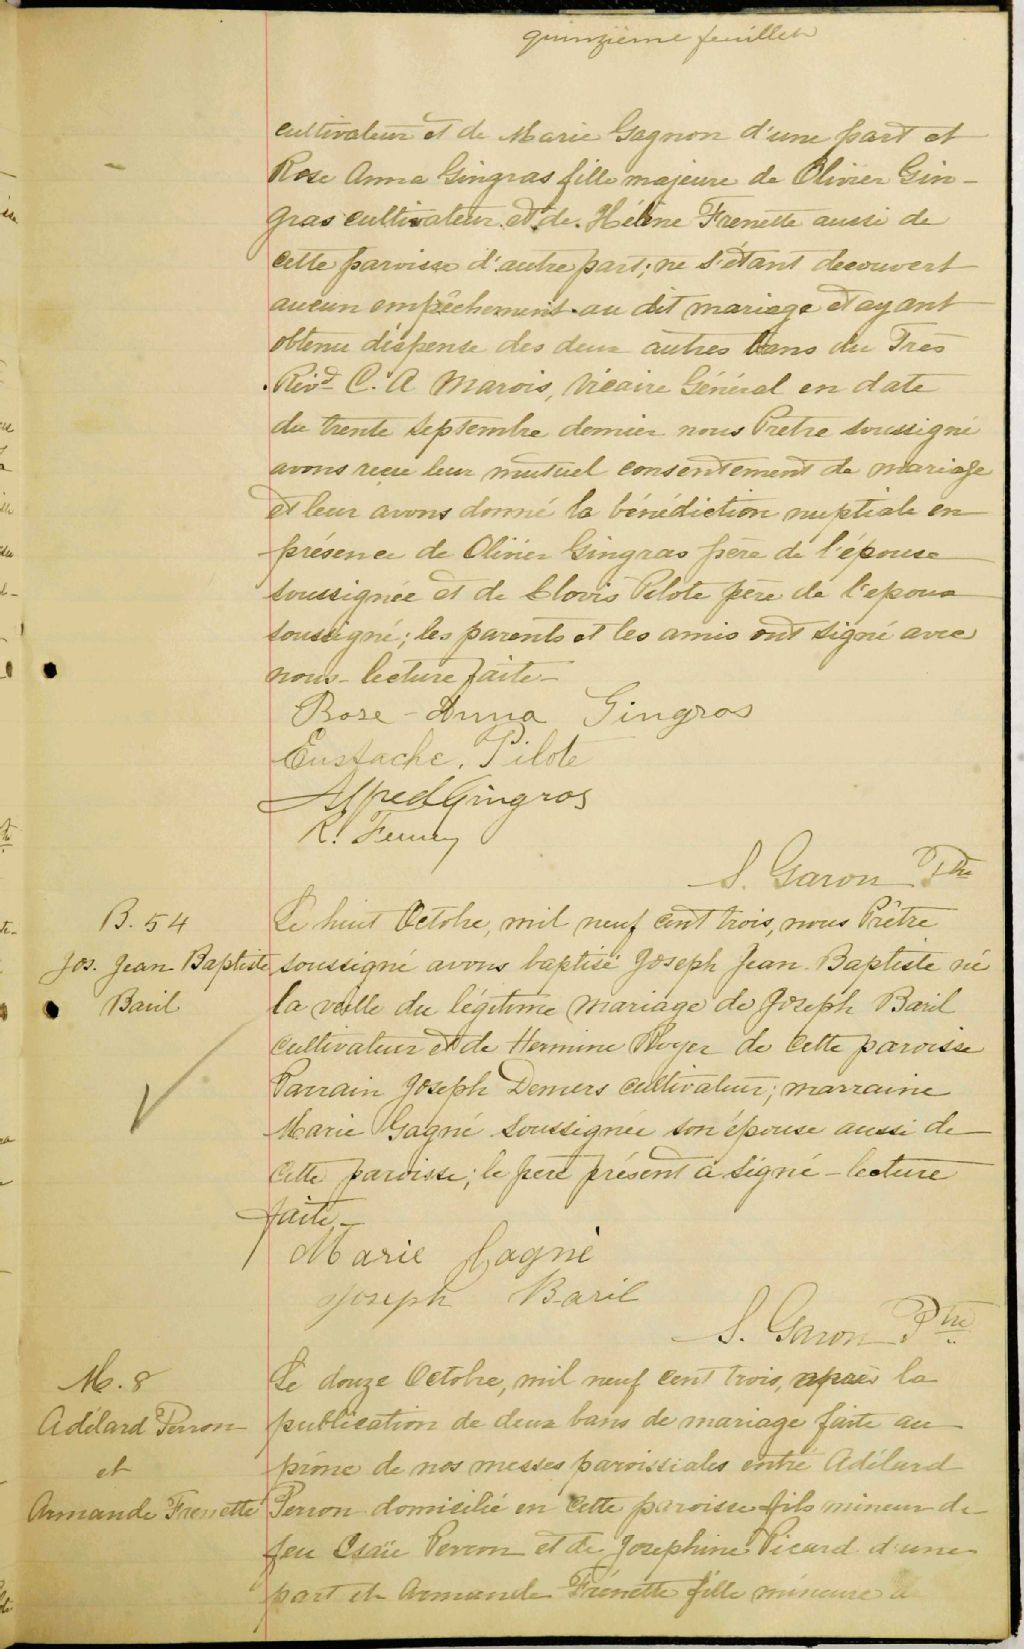 quinzième feuillet
cultivateur et de Marie Gagnon d'une part et
Rose Anna Gingras fille majeure de Olivier Gin-
gras cultivateur et de Hélène Frenette aussi de
cette paroisse d'autre part; ne s'étant decouvert
aucun empêchement au dit mariage et ayant
obtenu dispense des deux autres bans du Tres
Révd C. A Marois, Vicaire Général en date
du trente Septembre dernier nous Prêtre soussigné
avons reçu leur mutuel consentement de mariage
et leur avons donné la bénédiction nuptiale en
présence de Olivier Gingras père de l'épouse
soussignée et de Clovis Pilote père de l'epoux
soussigné; les parents et les amis ont signé avec
nous - lecture faite -
Rose-Anna Gingras
Eustache. Pilote
Alfred Gingras
S. Garon Ptre
B. 54
Jos. Jean Baptiste
Baril
Le huit Octobre, mil neuf cent trois, nous Prêtre
soussigné avons baptisé Joseph Jean Baptiste né
la veille du légitime mariage de Joseph Baril
cultivateur et de Hermine de cette paroisse
Parrain Joseph Demers cultivateur; marraine
Marie Gagné soussignée son épouse aussi de
cette paroisse; le père présent a signé - lecture
faite -
Marie Gagné
Joseph Baril
S. Garon Ptre
M. 8
Adélard Perron
et
Armande Frenette
Le douze Octobre, mil neuf cent trois, après la
publication de deux bans de mariage faite au
prône de nos messes paroissiales entre Adélard
Perron domicilié en cette paroisse fils mineur de
feu Esaïe Perron et de Josephine Picard d'une
part et Armande Frénette fille mineure de